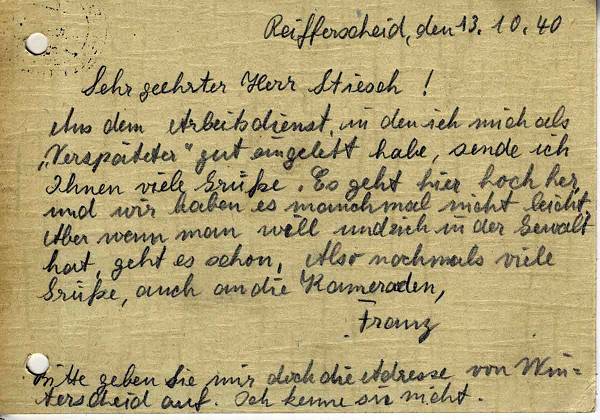 Reifferscheid, den 13. 10. 40
Sehr geehrter Herr Stiesch !
Aus dem Arbeitsdienst, in den ich mich als
„Verspäteter“ gut eingelebt habe, sende ich
Ihnen viele Grüße. Es geht hier hoch her,
und wir haben es manchmal nicht leicht.
Aber wenn man will und sich in der Gewalt
hat, geht es schon. Also nochmals viele
Grüße, auch an die Kameraden,
Franz
Bitte geben Sie mir doch die Adresse von Win-
terscheid auf. Ich kenne sie nicht.